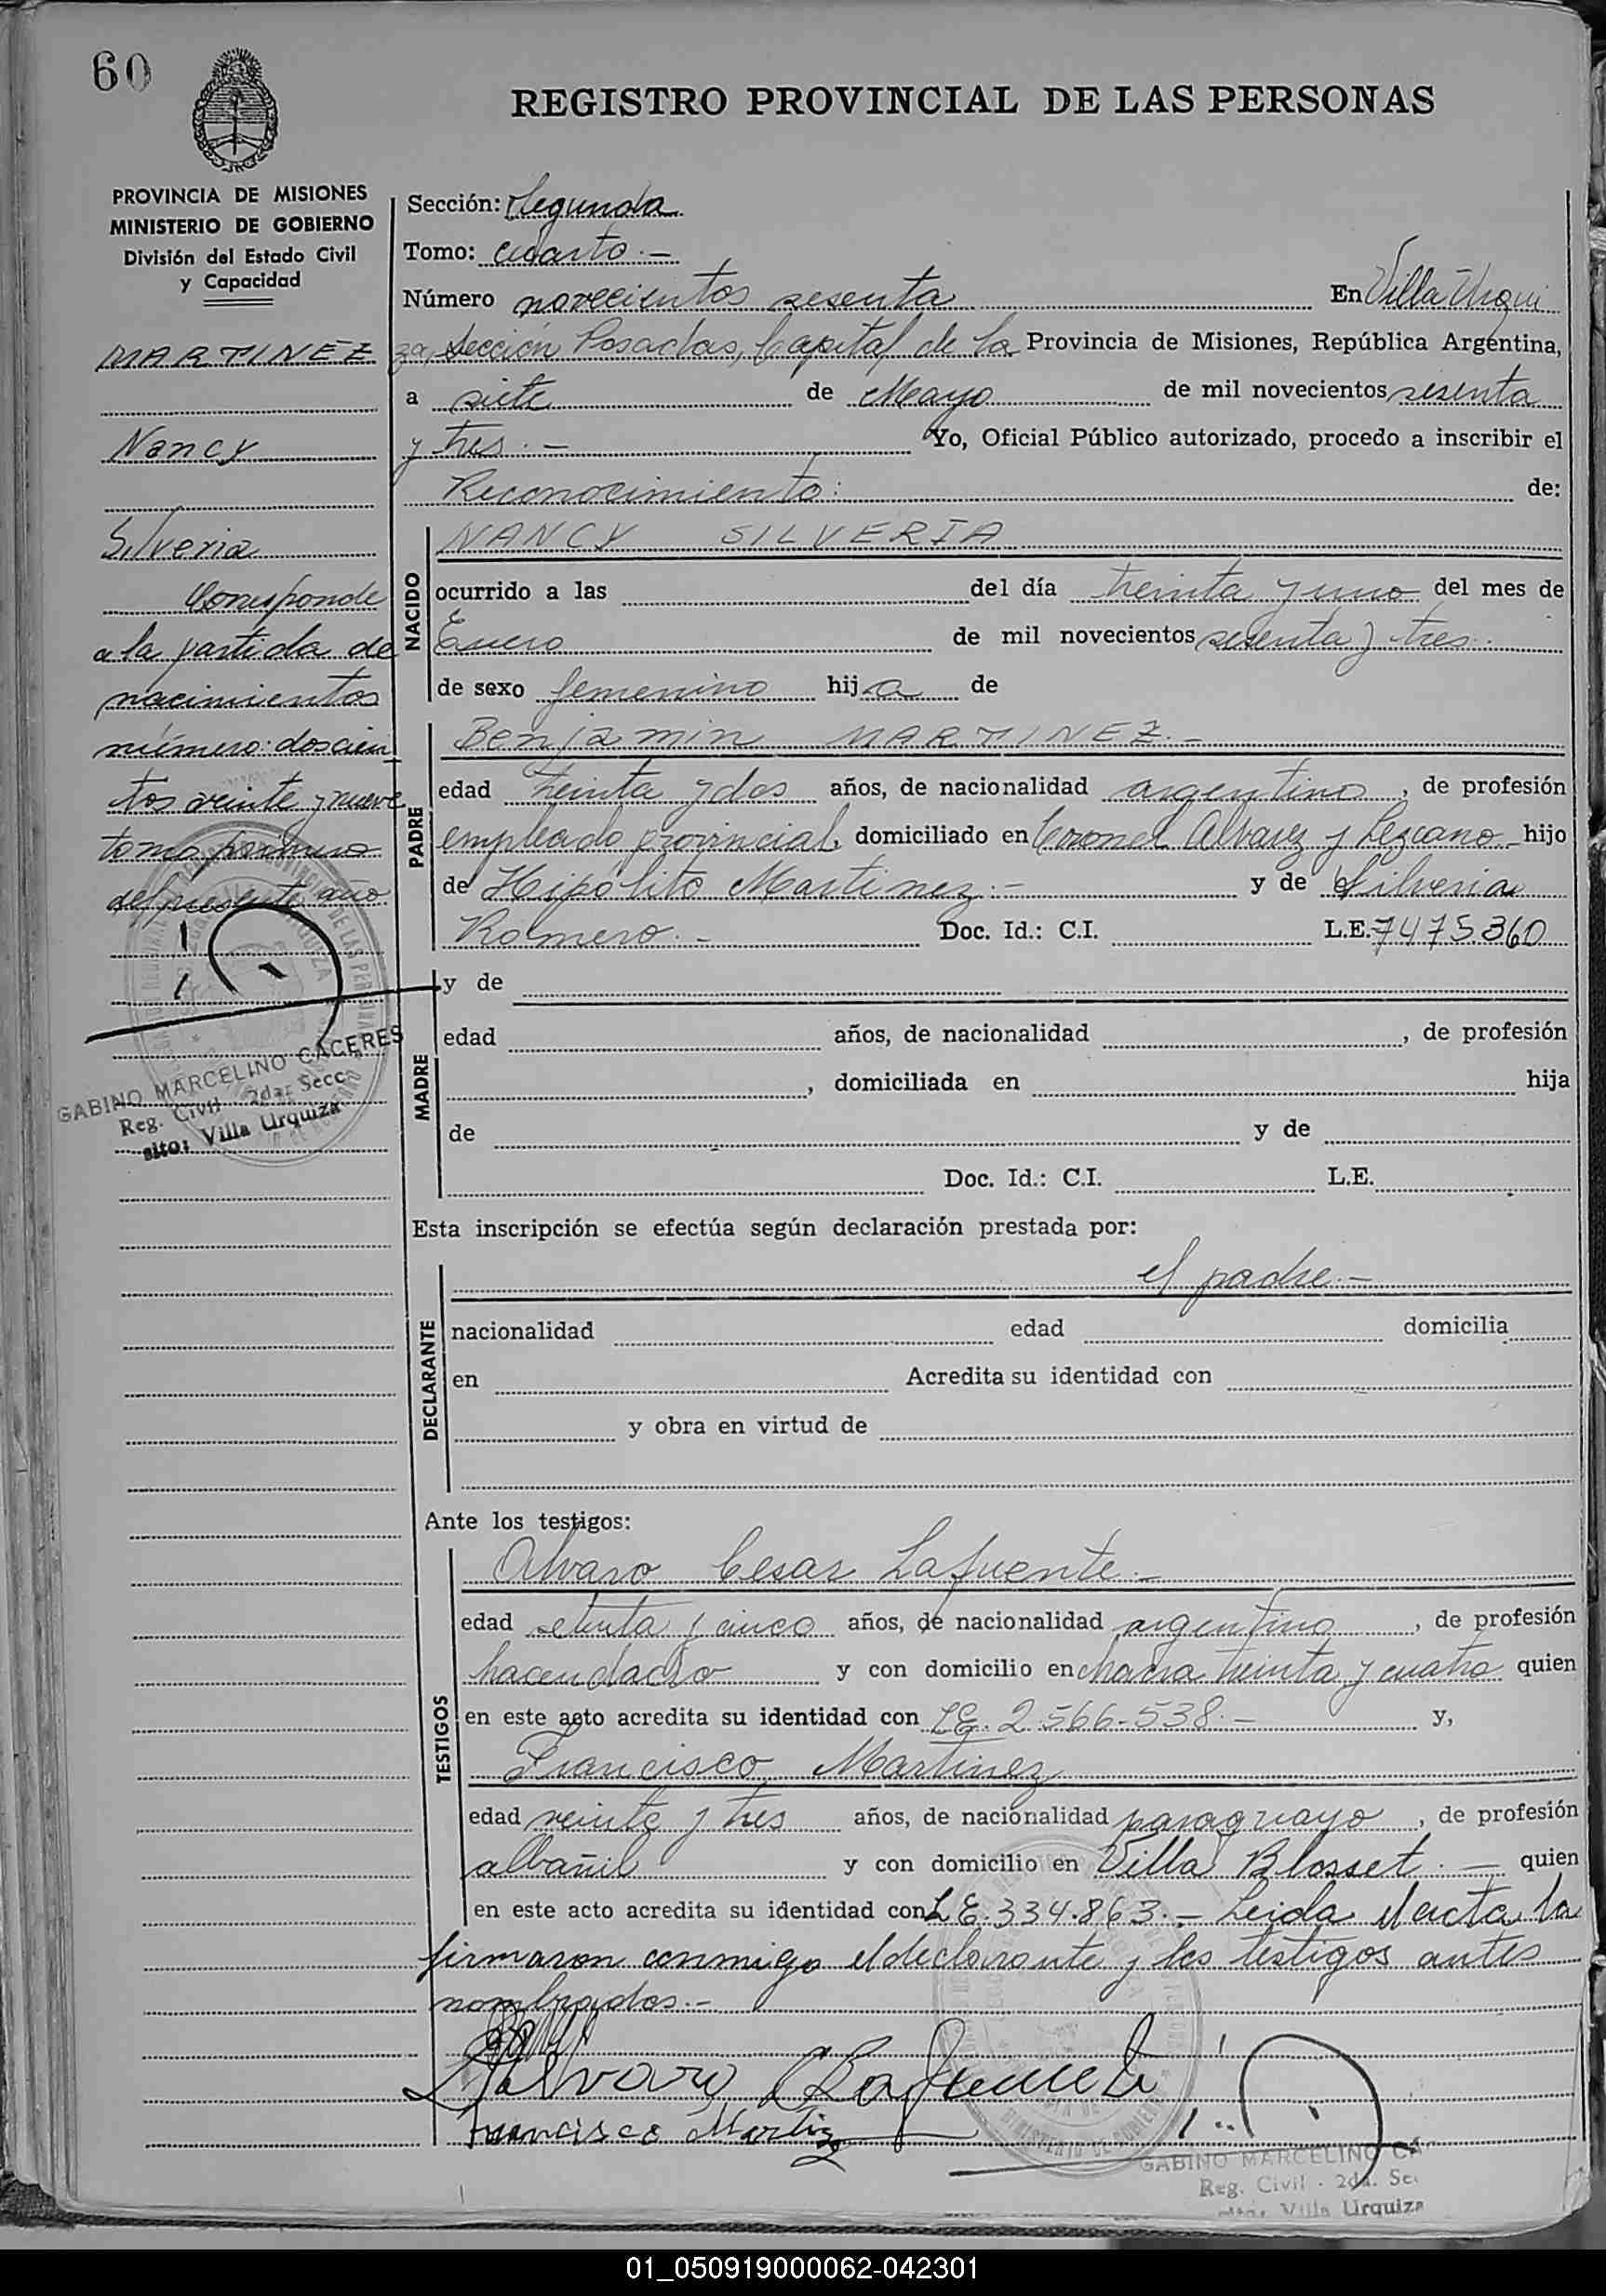 60
REGISTRO PROVINCIAL DE LAS PERSONAS
PROVINCIA DE MISIONES
MINISTERIO DE GOBIERNO
División del Estado Civil
y Capacidad
MARTINEZ
Nancy
Silveria
Corresponde
a la partida de
nacimientos
número: doscien
tos veinte y nueve
tomo primero
del presente año
GABINO MARCELINO CACERES
Reg. Civil 2da. Secc.
sito: Villa Urquiza
Sección: Segunda
Tomo: cuarto.-
Número novecientos sesenta En Villa Urqui
za, Sección Posadas, Capital de la Provincia de Misiones, República Argentina,
a siete de Mayo de mil novecientos sesenta
y tres.- Yo, Oficial Público autorizado, procedo a inscribir el
Reconocimiento: de:
NACIDO
NANCY SILVERIA
ocurrido a las del día treinta y uno del mes de
Enero de mil novecientos sesenta y tres.
de sexo femenino hija de
PADRE
Benjamin MARTINEZ.-
edad treinta y dos años, de nacionalidad argentino, de profesión
empleado provincial, domiciliado en Coronel Alvarez y Lezcano hijo
de Hipólito Martinez.- y de Silveria
Romero.- Doc. Id.: C.I. L.E. 7475360
MADRE
y de
edad años, de nacionalidad , de profesión
, domiciliada en hija
de y de
Doc. Id.: C.I. L.E.
Esta inscripción se efectúa según declaración prestada por:
DECLARANTE
el padre.-
nacionalidad edad domicilia
en Acredita su identidad con
y obra en virtud de
Ante los testigos:
TESTIGOS
Alvaro Cesar Lafuente.-
edad setenta y cinco años, de nacionalidad argentino, de profesión
hacendado y con domicilio en chacra treinta y cuatro quien
en este acto acredita su identidad con LE. 2.566-538.- y,
Francisco Martinez
edad veinte y tres años, de nacionalidad paraguayo, de profesión
albañil y con domicilio en Villa Blosset.- quien
en este acto acredita su identidad con LE. 334.863.- Leida el acta la
firmaron conmigo el declarante y los testigos antes
nombrados.-
Alvaro C Lafuente
Francisco Martinez
GABINO MARCELINO CA
Reg. Civil - 2da. Sec
sito: Villa Urquiza
01_050919000062-042301